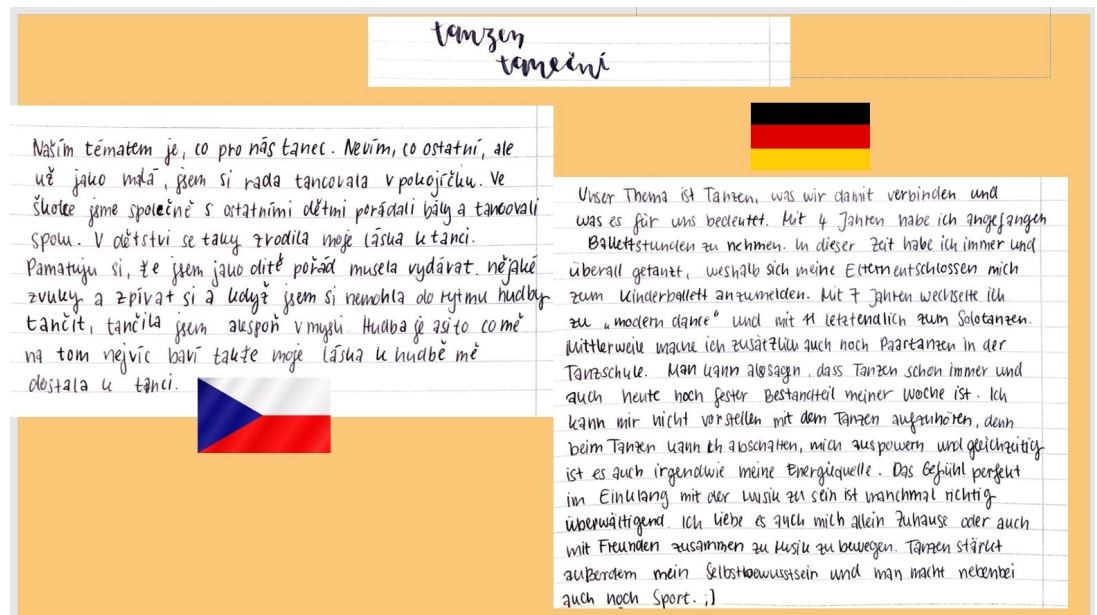 tanzen
taneční
Naším tématem je, co pro nás tanec. Nevím, co ostatní, ale
už jako malá, jsem si rada tancovala v pokojíčku. Ve
školce jsme společně s ostatními dětmi pořádali bály a tancovali
spolu. V dětství se taky zrodila moje láska k tanci.
Pamatuju si, že jsem jako dítě pořád musela vydávat nějaké
zvuky a zpívat si a když jsem si nemohla do rytmu hudby
tančit, tančila jsem alespoň v mysli. Hudba je asi to co mě
na tom nejvíc baví takže moje láska k hudbě mě
dostala k tanci.
Unser Thema ist Tanzen, was wir damit verbinden und
was es für uns bedeutet. Mit 4 Jahren habe ich angefangen
Ballettstunden zu nehmen. In dieser Zeit habe ich immer und
überall getanzt, weshalb sich meine Eltern entschlossen mich
zum Kinderballett anzumelden. Mit 7 Jahren wechselte ich
zu „modern dance“ und mit 11 letztendlich zum Solotanzen.
Mittlerweile mache ich zusätzlich auch noch Paartanzen in der
Tanzschule. Man kann also sagen, dass Tanzen schon immer und
auch heute noch fester Bestandteil meiner Woche ist. Ich
kann mir nicht vorstellen mit dem Tanzen aufzuhören, denn
beim Tanzen kann ich abschalten, mich auspowern und gleichzeitig
ist es auch irgendwie meine Energiequelle. Das Gefühl perfekt
im Einklang mit der Musik zu sein ist manchmal richtig
überwältigend. Ich liebe es auch mich allein Zuhause oder auch
mit Freunden zusammen zu Musik zu bewegen. Tanzen stärkt
außerdem mein Selbstbewusstsein und man macht nebenbei
auch noch Sport. ;)